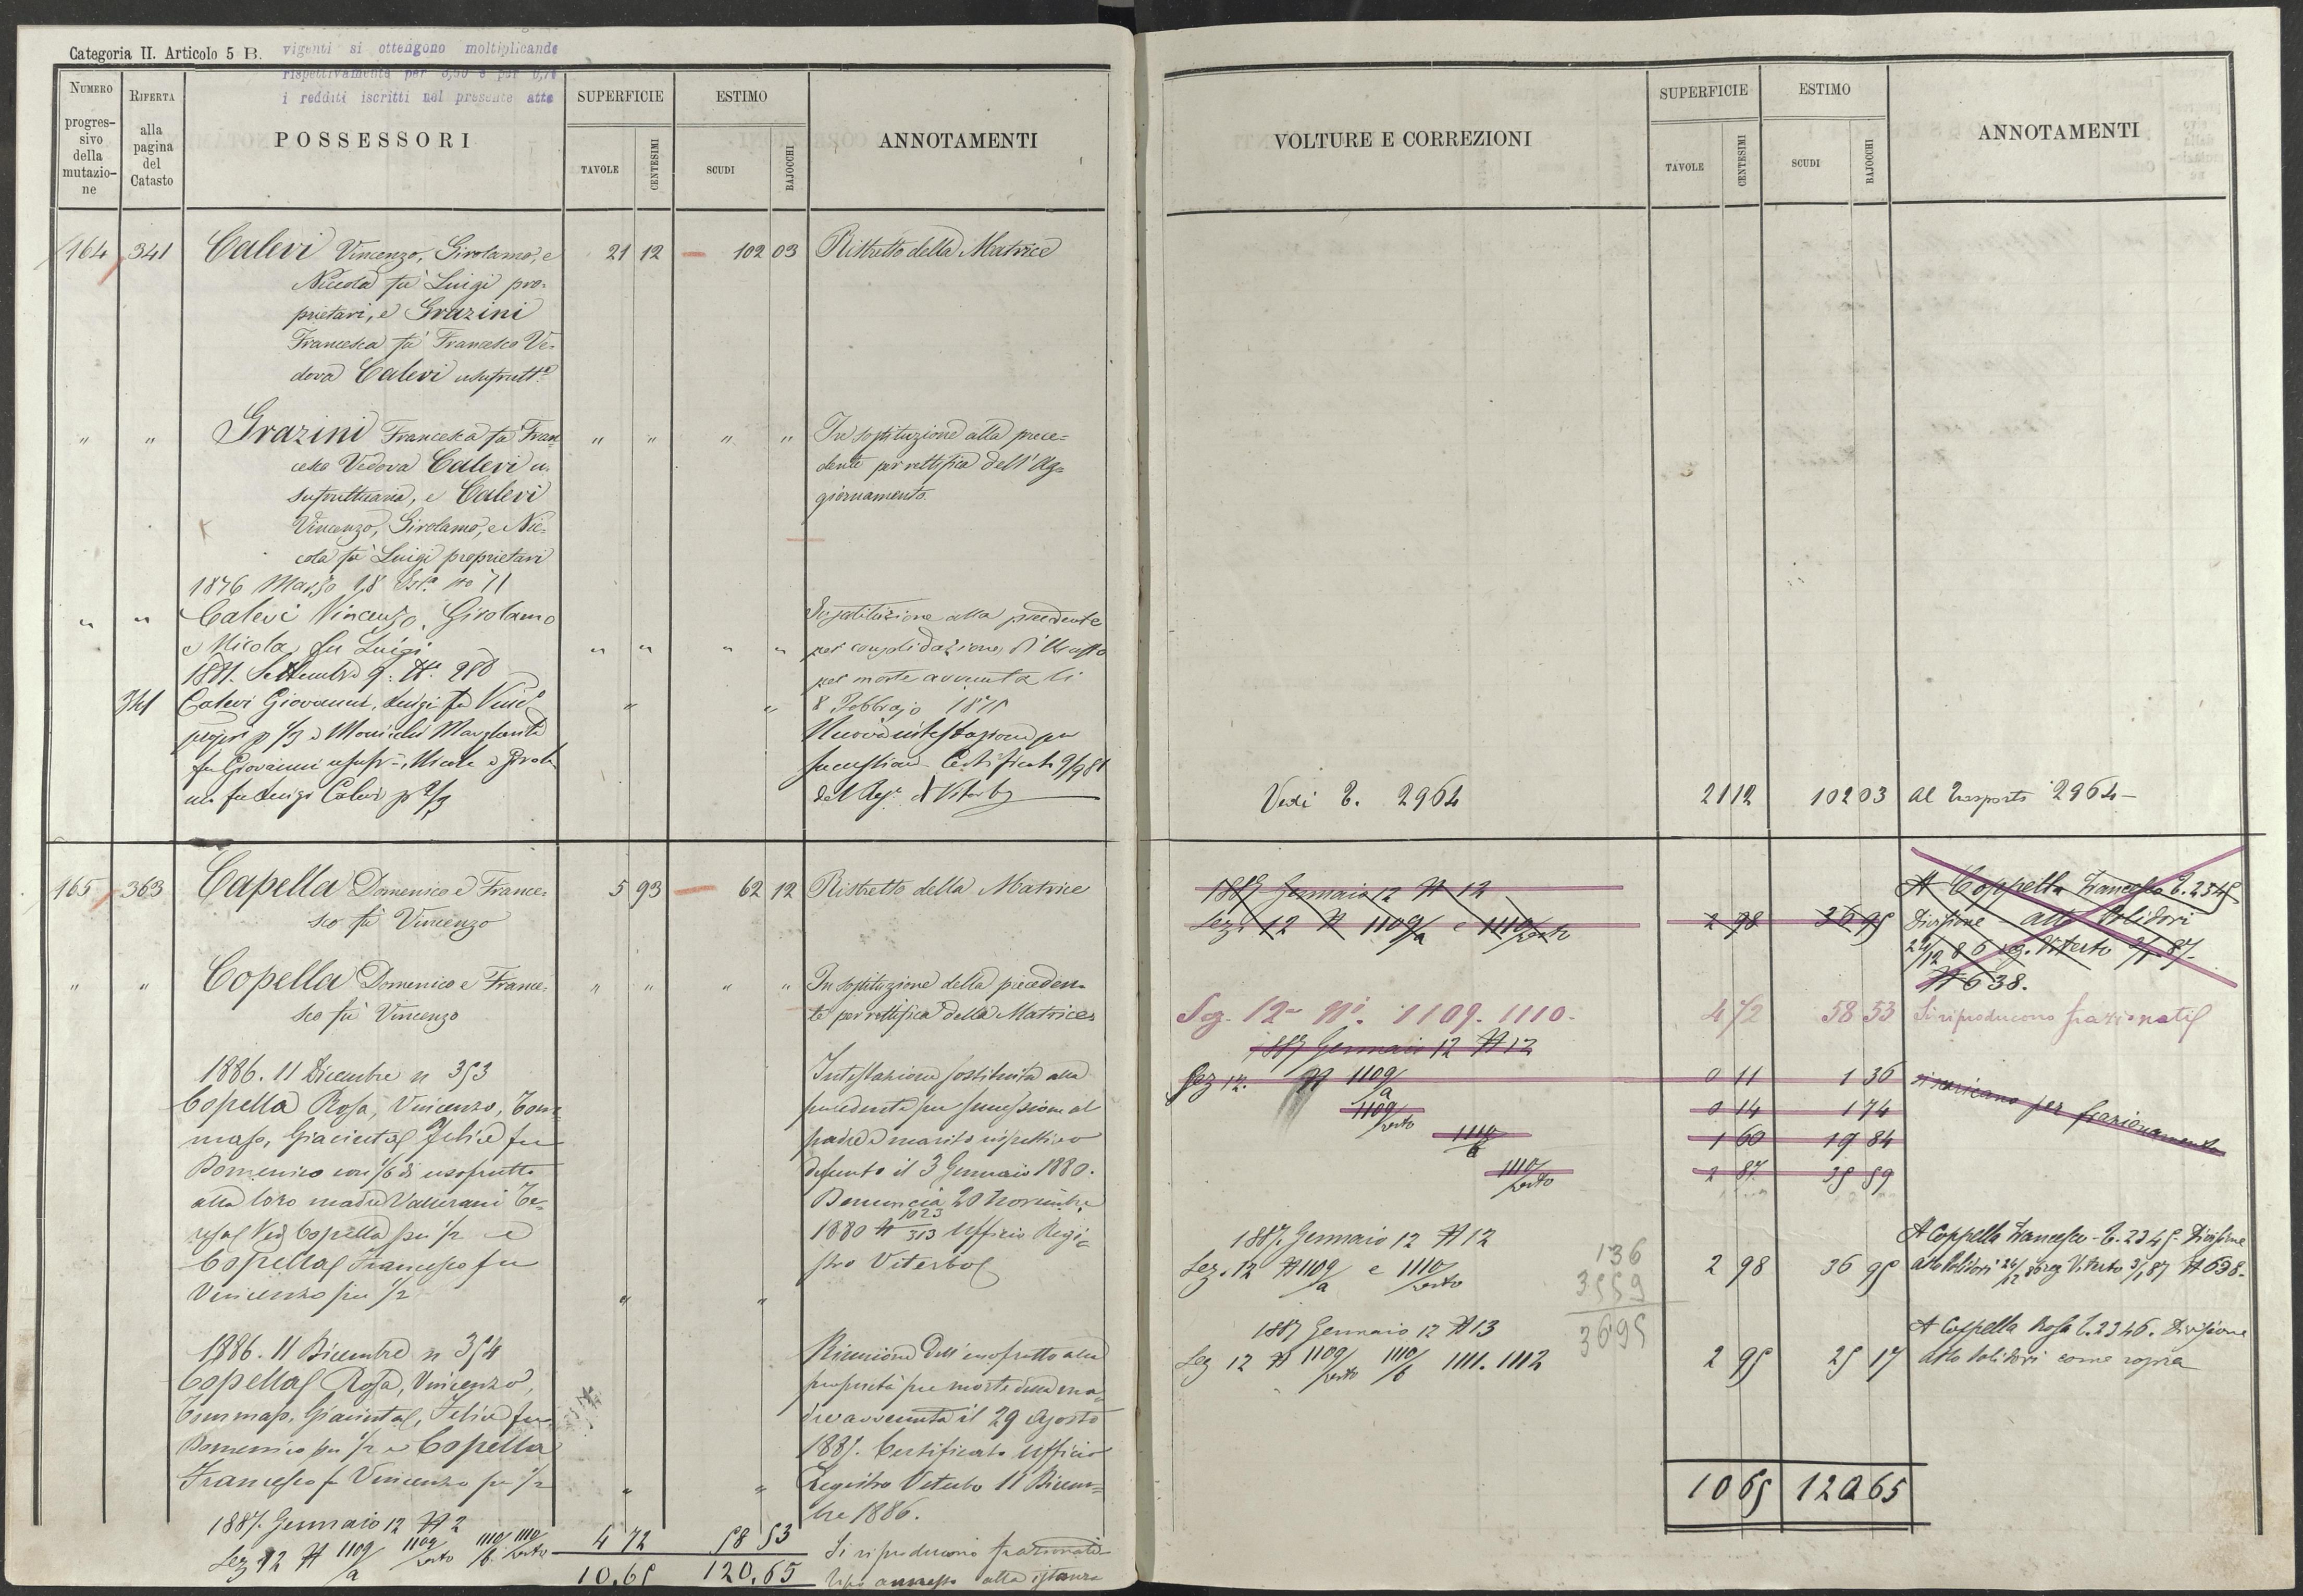 Categoria II. Articolo 5 B.
vigenti si ottengono moltiplicando
rispettivamente per
i redditi iscritti nel presente atto
NUMERO progressivo della mutazione
RIFERTA alla pagina del Catasto
POSSESSORI
SUPERFICIE
TAVOLE CENTESIMI
ESTIMO
SCUDI BAJOCCHI
ANNOTAMENTI
164 341 Calevi Vincenzo, Girolamo, e 21 12 102 03 Ristretto della Matrice
Niccola fu Luigi pro-
prietari, e Grazini
Francesca fu Francesco Ve-
dova Calevi usufrutt.a
" " Grazini Francesca fu Fran- " " " " In sostituzione alla prece=
cesco Vedova Calevi u-
dente per rettifica dell'Ag=
sufruttuaria, e Calevi
giornamento.
Vincenzo, Girolamo, e Nic-
cola fu Luigi proprietari
1876 Marzo 18 No 71
" " Calevi Vincenzo, Girolamo
Sostituzione alla precedente
e Nicola fu Luigi " " " " per consolidazione d'
1881. Settembre 9. N. 280
per morte avvenuta li
341 Calevi Giovanni, Luigi fu Vinc " " 8 Febbrajo 1875
Nuova intestazione per
fu Giovanni Nicola e Girola
successione Certificato 9/9 81
mo fu Luigi Calevi p 2/3
del Reg. di Viterbo
165 363 Capella Domenico e France- 5 93 62 12 Ristretto della Matrice
sco fu Vincenzo
" " Copella Domenico e France- " " " " In sostituzione della preceden-
sco fu Vincenzo
te per rettifica della Matrice
1886. 11 Dicembre n 353
Intestazione sostituita alla
Copella Rosa, Vincenzo, Tom-
precedente per successione al
maso, Giacinta, Felice fu
padre e marito rispettivo
Domenico con 1/6 di usofrutto
defunto il 3 Gennaio 1880.
alla loro madre Valerani Te-
Denuncia 20 Novembre
resa Ved Copella per 1/2 e
1880 N 1023/313 Ufficio Regi-
Copella Francesco fu
stro Viterbo
Vincenzo per 1/2 " "
1886. 11 Dicembre n 354
Riunione dell'usofrutto alla
Copella Rosa, Vincenzo,
proprietà per morte della ma-
Tommaso, Giacinta, Felice fu
dre avvenuta il 29 Agosto
Domenico per 1/2 e Copella
1885. Certificato Ufficio
Francesco fu Vincenzo per 1/2 " " Registro Viterbo 11 Dicem-
bre 1886.
1887. Gennaio 12 N 2
Sez 12 N 1109/a 1109/resto 1110/b 1110/resto 4 72 58 53 Si riproducono frazionati
10.65 120.65 tipo annesso alla istanza
VOLTURE E CORREZIONI
SUPERFICIE
TAVOLE CENTESIMI
ESTIMO
SCUDI BAJOCCHI
ANNOTAMENTI
Vedi T. 2964 21 12 102 03 Al Trasporto 2964-
1887 Gennaio 12 N 12
A Coppella Francesco T. 2345
Sez. 12 N 1109/a e 1110/resto 2 98 36 95 Divisione - atto Polidori
24/12 86 reg. Viterbo 3/1 87-
N 638.
Sez. 12a Ni. 1109. 1110. 4 72 58 53 Si riproducono frazionati
1887 Gennaio 12 N 12
Sez 12. N 1109/a 0 11 1 36 si scaricano per frazionamento
1109/resto 0 14 1 74
1110/b 1 60 19 84
1110/resto 2 87 35 59
1887. Gennaio 12 N 12
A Coppella Francesco - T. 2345 Divisione
Sez. 12 N 1109/a e 1110/resto 2 98 36 95 atto Polidori 24/12 86 reg Viterbo 3/1 87 N 638-
136
3559
3695
1887 Gennaio 12 N 13
A Coppella Rosa T. 2346. Divisione
Sez 12 N 1109/resto 1110/b 1111. 1112 2 95 25 17 atto Polidori come sopra
10 65 120 65